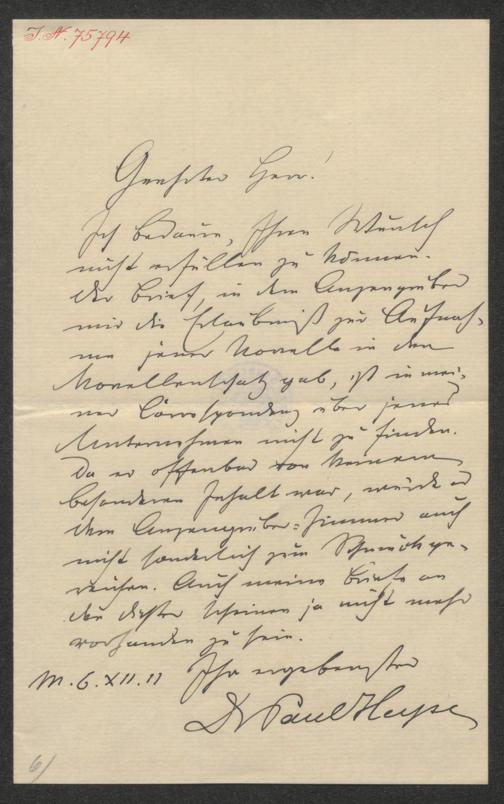 I. N. 75794
Geehrter Herr!
Ich bedaure, Ihren Wunsch
nicht erfüllen zu können.
Der Brief, in dem Anzengruber
mir die Erlaubniß zur Aufnah-
me jener Novelle in den
Novellenschatz gab, ist in mei-
ner Correspondenz über jenes
Unternehmen nicht zu finden.
Da er offenbar von keinem
besonderen Inhalt war, würde er
dem Anzengruber-Zimmer auch
nicht sonderlich zum Schmuck ge-
reichen. Auch meine Briefe an
den Dichter scheinen ja nicht mehr
vorhanden zu sein.
Ihr ergebenster
M. 6. XII. 11
Dr Paul Heyse
6/